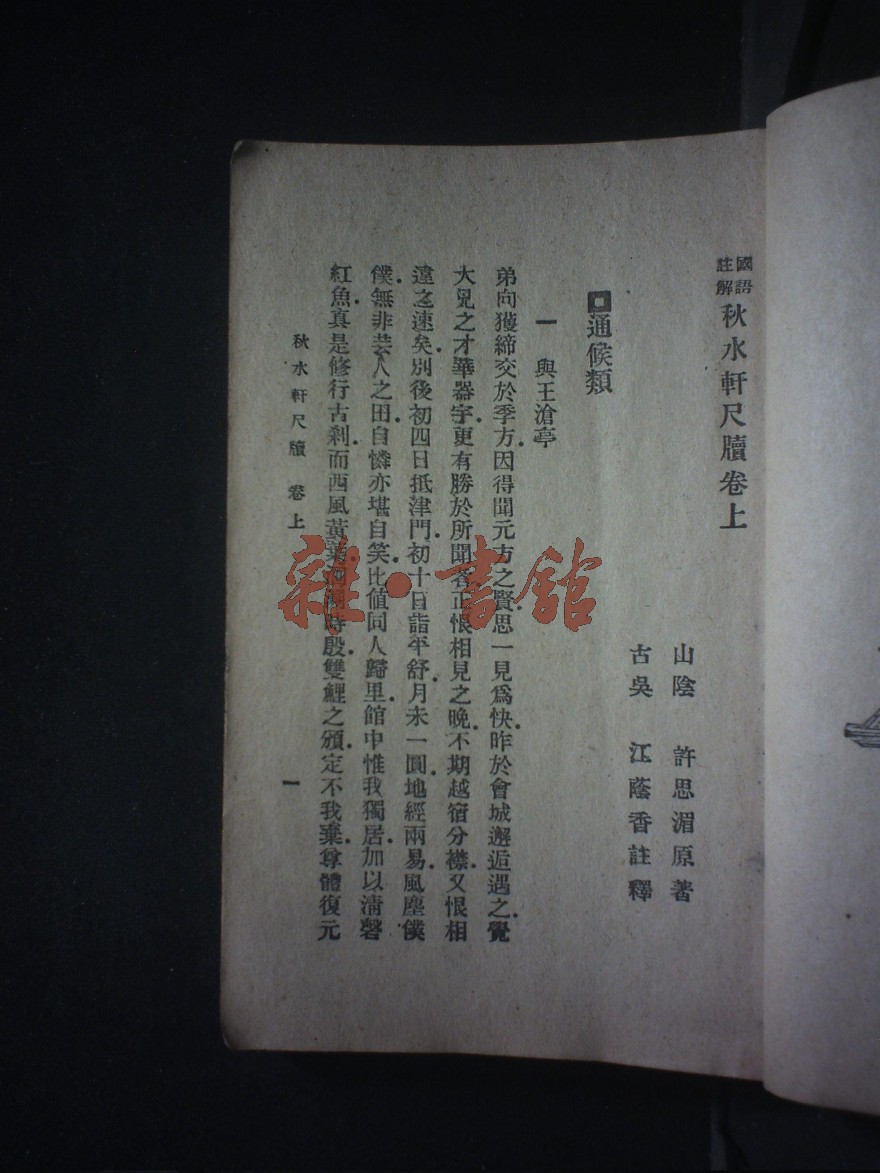 國語註解 秋水軒尺牘卷上
山陰 許思湄原著
古吳 江蔭香註釋
通候類
一 與王滄亭
弟向獲締交於季方.因得聞元方之賢.思一見爲快.昨於會城邂逅遇之.覺
大兄之才華器宇.更有勝於所聞者.正恨相見之晚.不期越宿分襟.又恨相
違之速矣.別後初四日抵津門.初十日詣平舒.月未一圓.地經兩易.風塵僕
僕.無非芸人之田.自憐亦堪自笑.比值同人歸里.館中惟我獨居.加以清磬
紅魚.真是修行古刹.而西風黃葉 時殷.雙鯉之頒.定不我棄.尊體復元
秋水軒尺牘 卷上
一
雜·書館